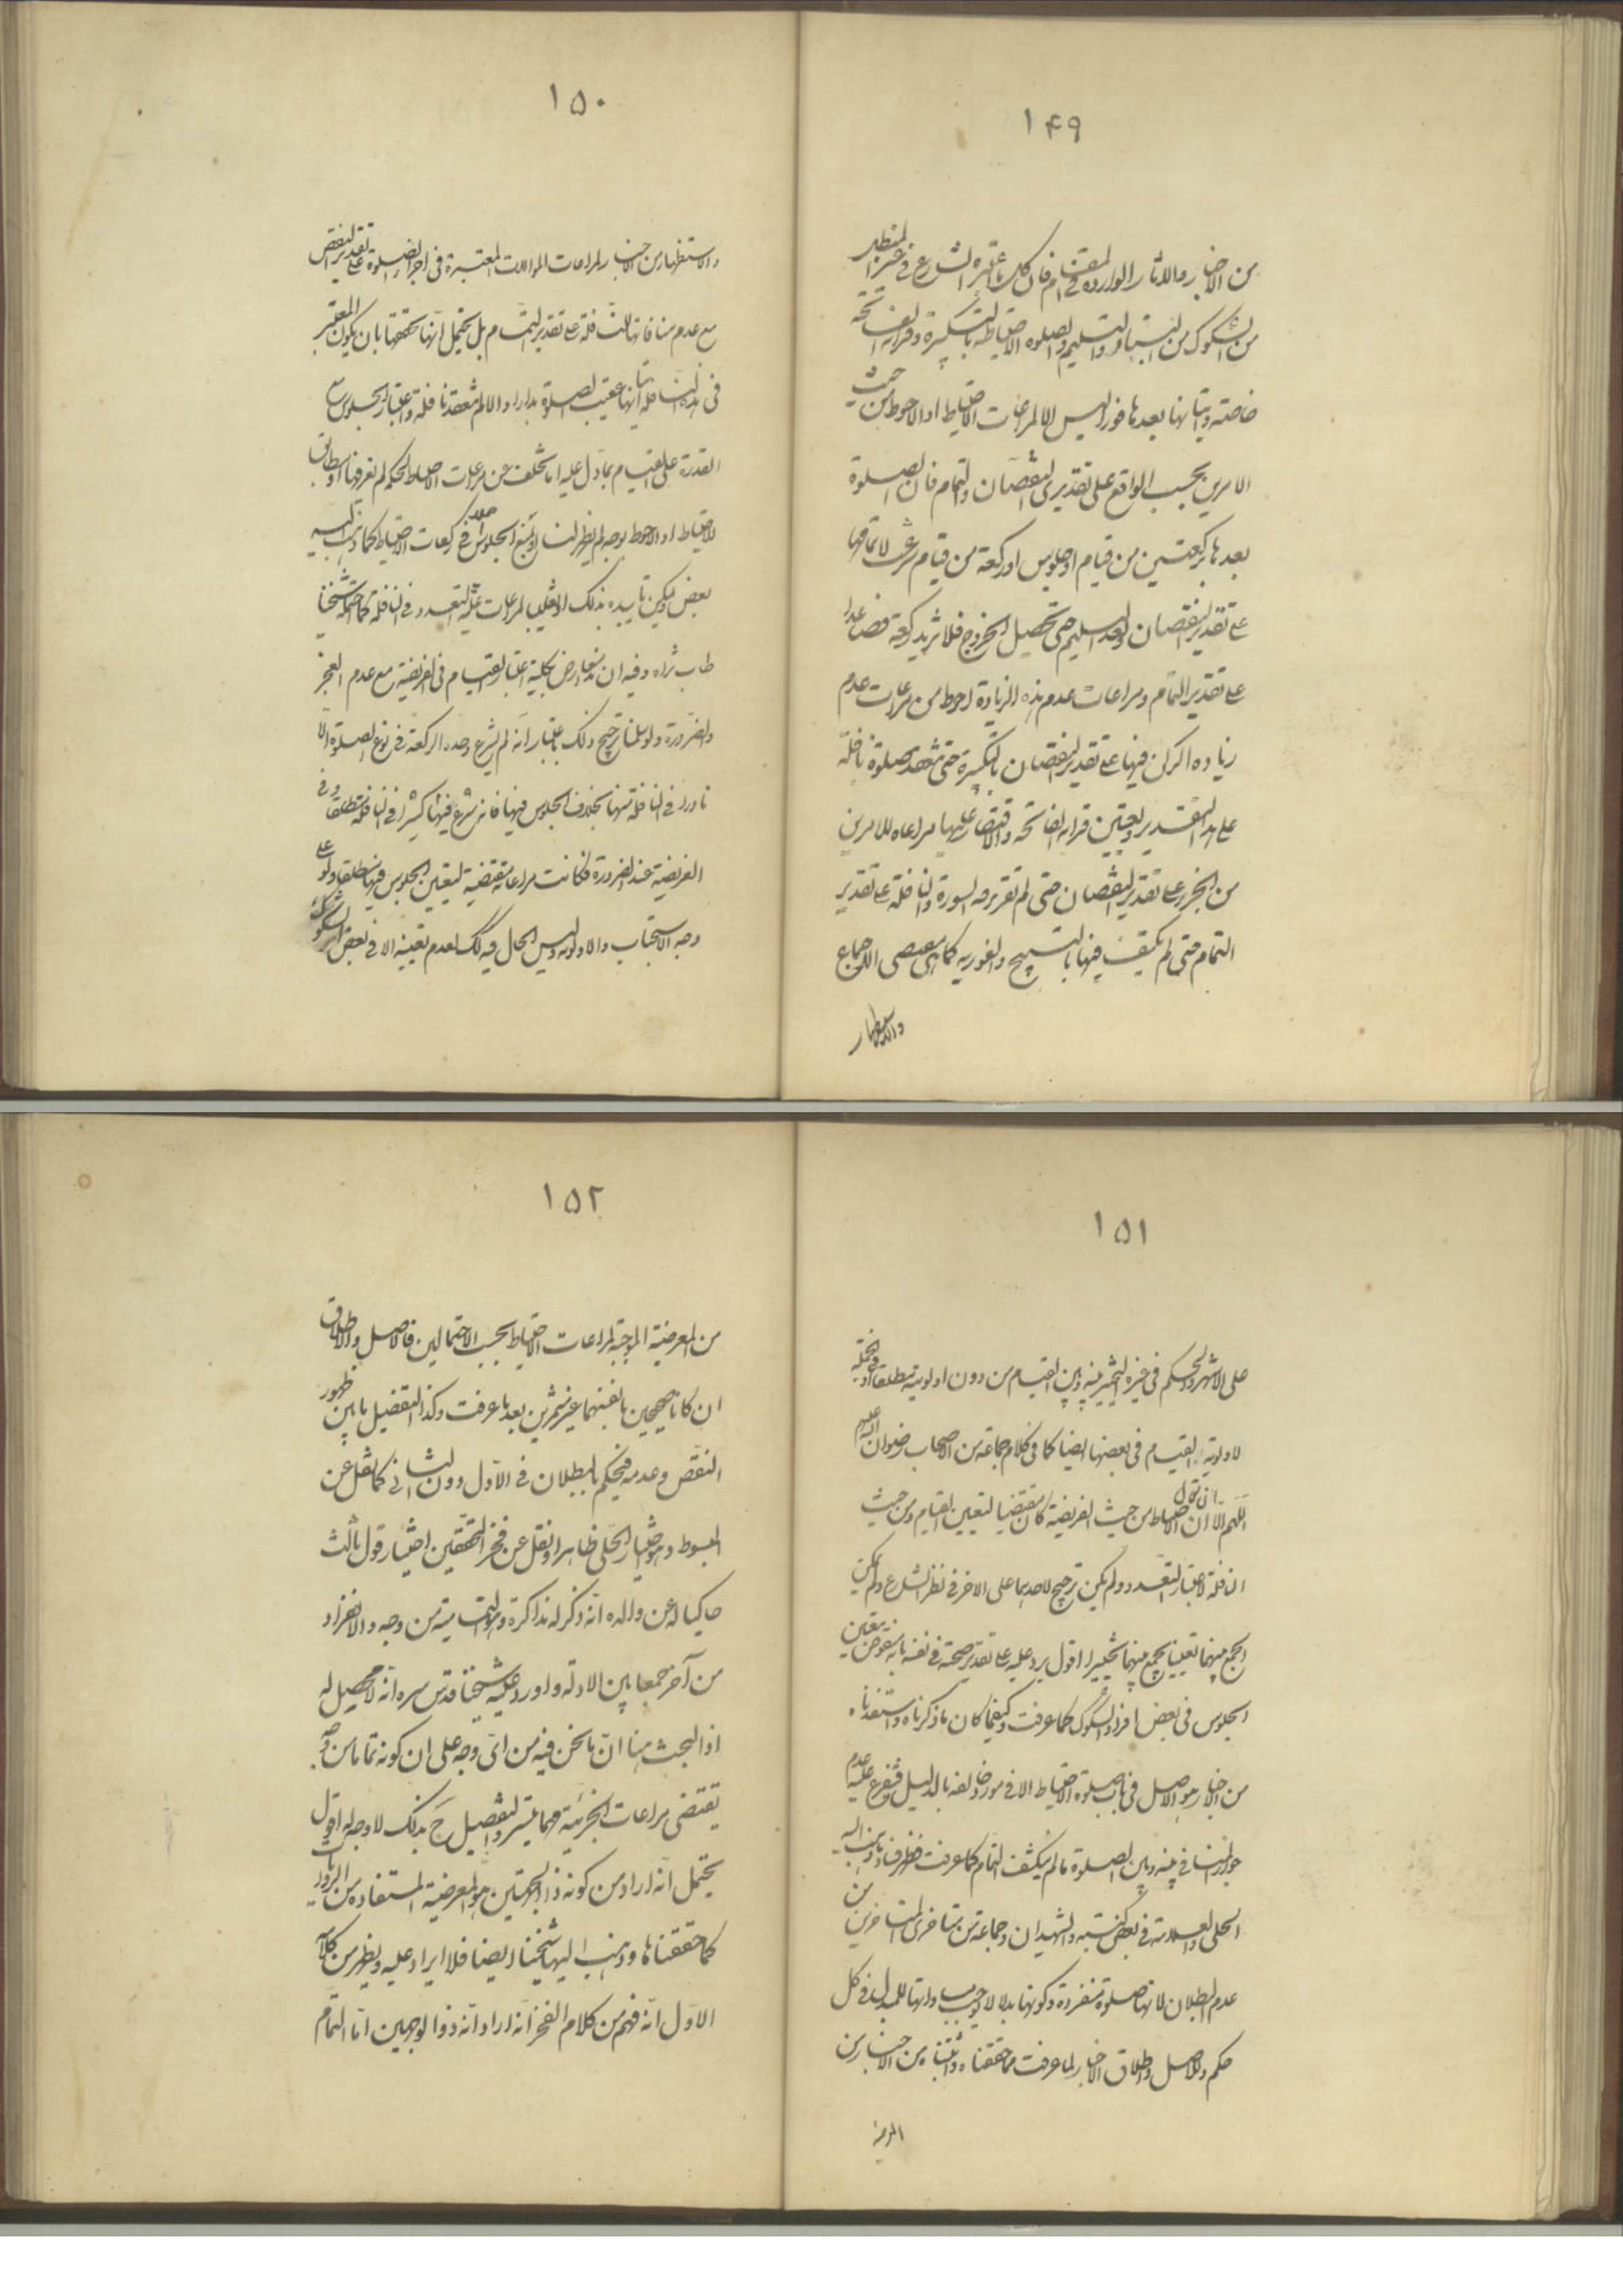 ۱۴۹
من الاخبار والاثار الواردة في المقام فان كل ما اعتبره الشارع في
من الشكوك من البناء والتسليم وصلوة الاحتياط بالتكبيرة وقرائة الفاتحة
خاصة واتيانها بعدها فورا ليس الا لمراعات الاحتياط او الاحوط من حيث
الامرين بحسب الواقع على تقديرى النقصان والتمام فان الصلوة
بعدها بركعتين من قيام او جلوس او ركعة من قيام شرعت لاتمامها
على تقدير النقصان وبعد التسليم حتى تحصيل الخروج فلا تزيد ركعة فصاعدا
على تقدير التمام ومراعات عدم هذه الزيادة احوط من مراعات عدم
زياده الركن فيها على تقدير النقصان بالتكبيرة حتى تنعقد صلوة نافلة
على هذا التقدير وتعيين قرائه الفاتحه والاقتصار عليها مراعاه للامرين
من الجزء على تقدير النقصان حتى لم تقرء معه السورة والنافلة على تقدير
التمام حتى لم يكتف فيها بالتسبيح والفوريه كما هى الاجماع
والاستظهار
۱۵۰
والاستظهار من الاخبار لمراعات الموالات المعتبرة في اجزاء الصلوة على تقدير النقص
مع عدم منافاتها النافلة على تقدير التمام بل يحتمل انها تحققها بان يكون المعتبر
فى هذه النافلة اتيانها عقيب الصلوة بدارا والا لم تنعقد نافلة واعتبار الجلوس مع
القدرة على القيام بما دل عليه اما تخلف عن مراعات الاحتياط لحكم لم نعرفها او مطابق
لاحتياط او الاحوط بوجه لم يظهر لنا او يمنع الجلوس في ركعات الاحتياط كما ذهب اليه
بعض ويمكن تاييده بذلك او تغليب لمراعات التعدد في النافلة كما احتمله شيخنا
طاب ثراه وفيه ان هذا يعارض بكلية اعتبار القيام فى الفريضة مع عدم العجز
والضرورة ولو سلمنا ترجيح ذلك باعتبار انه لم يشرع وحده الركعة في نوع الصلوة الا
نادرا في النافلة منها بخلاف الجلوس فيها فانه شرع فيها كثيرا في النافلة مطلقا وفى
الفريضة عند الضرورة فكانت مراعاته مقتضية لتعيين الجلوس فيها مطلقا ولو على
وجه الاستحباب والاولوية وليس الحال فيه كك لعدم تعيينه الا في بعض الشكوك
۱۵۱
على الاشهر والحكم فى غيره التخيير بينه وبين القيام من دون اولوية مطلقا او في الجملة
لاولوية القيام فى بعضها ايضا كما فى كلام جماعة من الاصحاب رضوان الله عليهم
اللهم الا ان نقول ان الاحتياط من حيث الفريضة كان مقتضيا لتعيين القيام ومن حيث
النافلة لاعتبار التعدد ولم يكن ترجيح لاحدهما على الاخر فى نظر الشارع ولم يمكن
الجمع بينهما تعيينا يجمع بينهما تخييرا اقول يرد عليه على تقدير صحته في نفسه بانه منقوض بتعين
الجلوس فى بعض افراد الشكوك كما عرفت وكيفما كان ما ذكرناه واستفدناه
من الاخبار هو الاصل فى باب صلوة الاحتياط الا في مورد خالفه بالدليل ويتفرع عليه عدم
جواز المنافى بينه وبين الصلوة ما لم ينكشف التمام كما عرفت فظهر فساد ما ذهب اليه
الحلى والعلامة في بعض كتبه والشهيدان وجماعة من متاخرى المتاخرين من
عدم البطلان لانها صلوة منفردة وكونها بدلا لا يوجب مساواتها للمبدل فى كل
حكم وللاصل واطلاق الاخبار لما عرفت مما حققناه واثبتناه من الاخبار من
المعرضية
۱۵۲
من المعرضية الموجبة لمراعات الاحتياط بحسب الاحتمالين فالاصل والاطلاق
ان كانا صحيحين بانفسهما غير مثمرين بعد ما عرفت وكذا التفصيل ما بين ظهور
النقص وعدمه فيحكم بالبطلان في الاول دون الثانى كما نقل عن
المبسوط وهو خيار الحلى ظاهرا ونقل عن فخر المحققين اختيار قول ثالث
حاكيا له عن والده انه ذكر له مذاكرة وهو التمامية من وجه والانفراد
من آخر جمعا بين الادلة واورد عليه شيخنا قدس سره انه لا محصل له
اذ البحث هنا ان ما نحن فيه من اى وجه على ان كونه تماما من وجه
يقتضى مراعات الجزئية مهما تيسر والتفصيل ح بذلك لا وجه له اقول
يحتمل انه اراد من كونه ذا الجهتين هو المعرضية المستفاده من الروايات
كما حققناها وذهب اليها شيخنا ايضا فلا ايراد عليه ويظهر من كلامه
الاول انه فهم من كلام الفخر انه اراد انه ذو الوجهين اما التمام